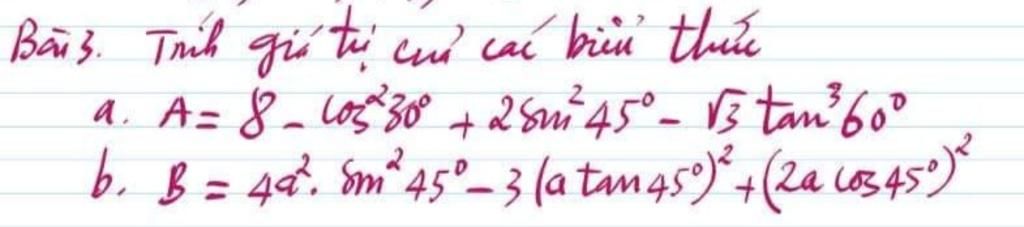 Bài 3. Tính giá trị của các biểu thức
a. A = 8 - cos²30° + 2sin²45° - √3 tan³60°
b. B = 4a². sin²45° - 3(a tan45°)² + (2a cos45°)²